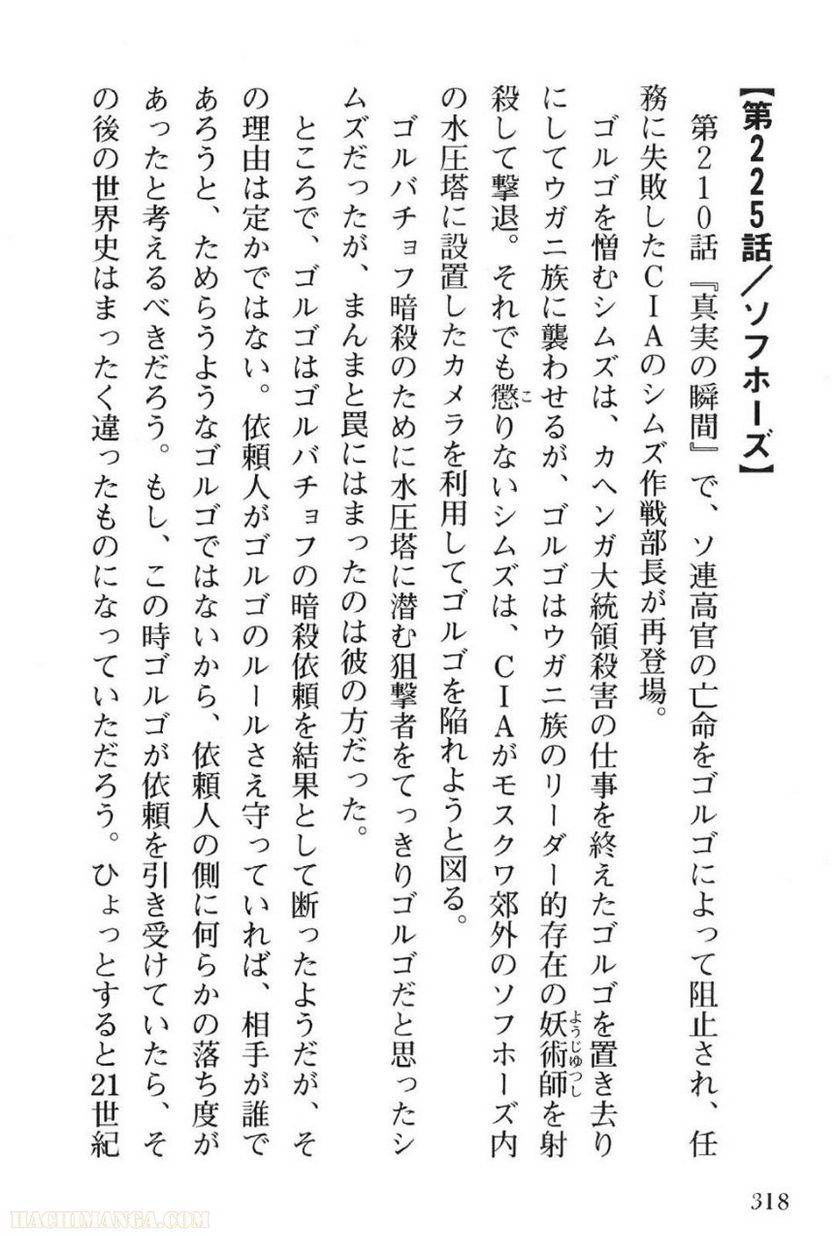 【第225話／ソフホーズ】
第210話『真実の瞬間』で、ソ連高官の亡命をゴルゴによって阻止され、任
務に失敗したCIAのシムズ作戦部長が再登場。
ゴルゴを憎むシムズは、カヘンガ大統領殺害の仕事を終えたゴルゴを置き去り
にしてウガニ族に襲わせるが、ゴルゴはウガニ族のリーダー的存在の妖術師を射
ようじゅつし
殺して撃退。それでも懲りないシムズは、CIAがモスクワ郊外のソフホーズ内
こ
の水圧塔に設置したカメラを利用してゴルゴを陥れようと図る。
ゴルバチョフ暗殺のために水圧塔に潜む狙撃者をてっきりゴルゴだと思ったシ
ムズだったが、まんまと罠にはまったのは彼の方だった。
ところで、ゴルゴはゴルバチョフの暗殺依頼を結果として断ったようだが、そ
の理由は定かではない。依頼人がゴルゴのルールさえ守っていれば、相手が誰で
あろうと、ためらうようなゴルゴではないから、依頼人の側に何らかの落ち度が
あったと考えるべきだろう。もし、この時ゴルゴが依頼を引き受けていたら、そ
の後の世界史はまったく違ったものになっていただろう。ひょっとすると21世紀
318
HACHIMANGA.COM